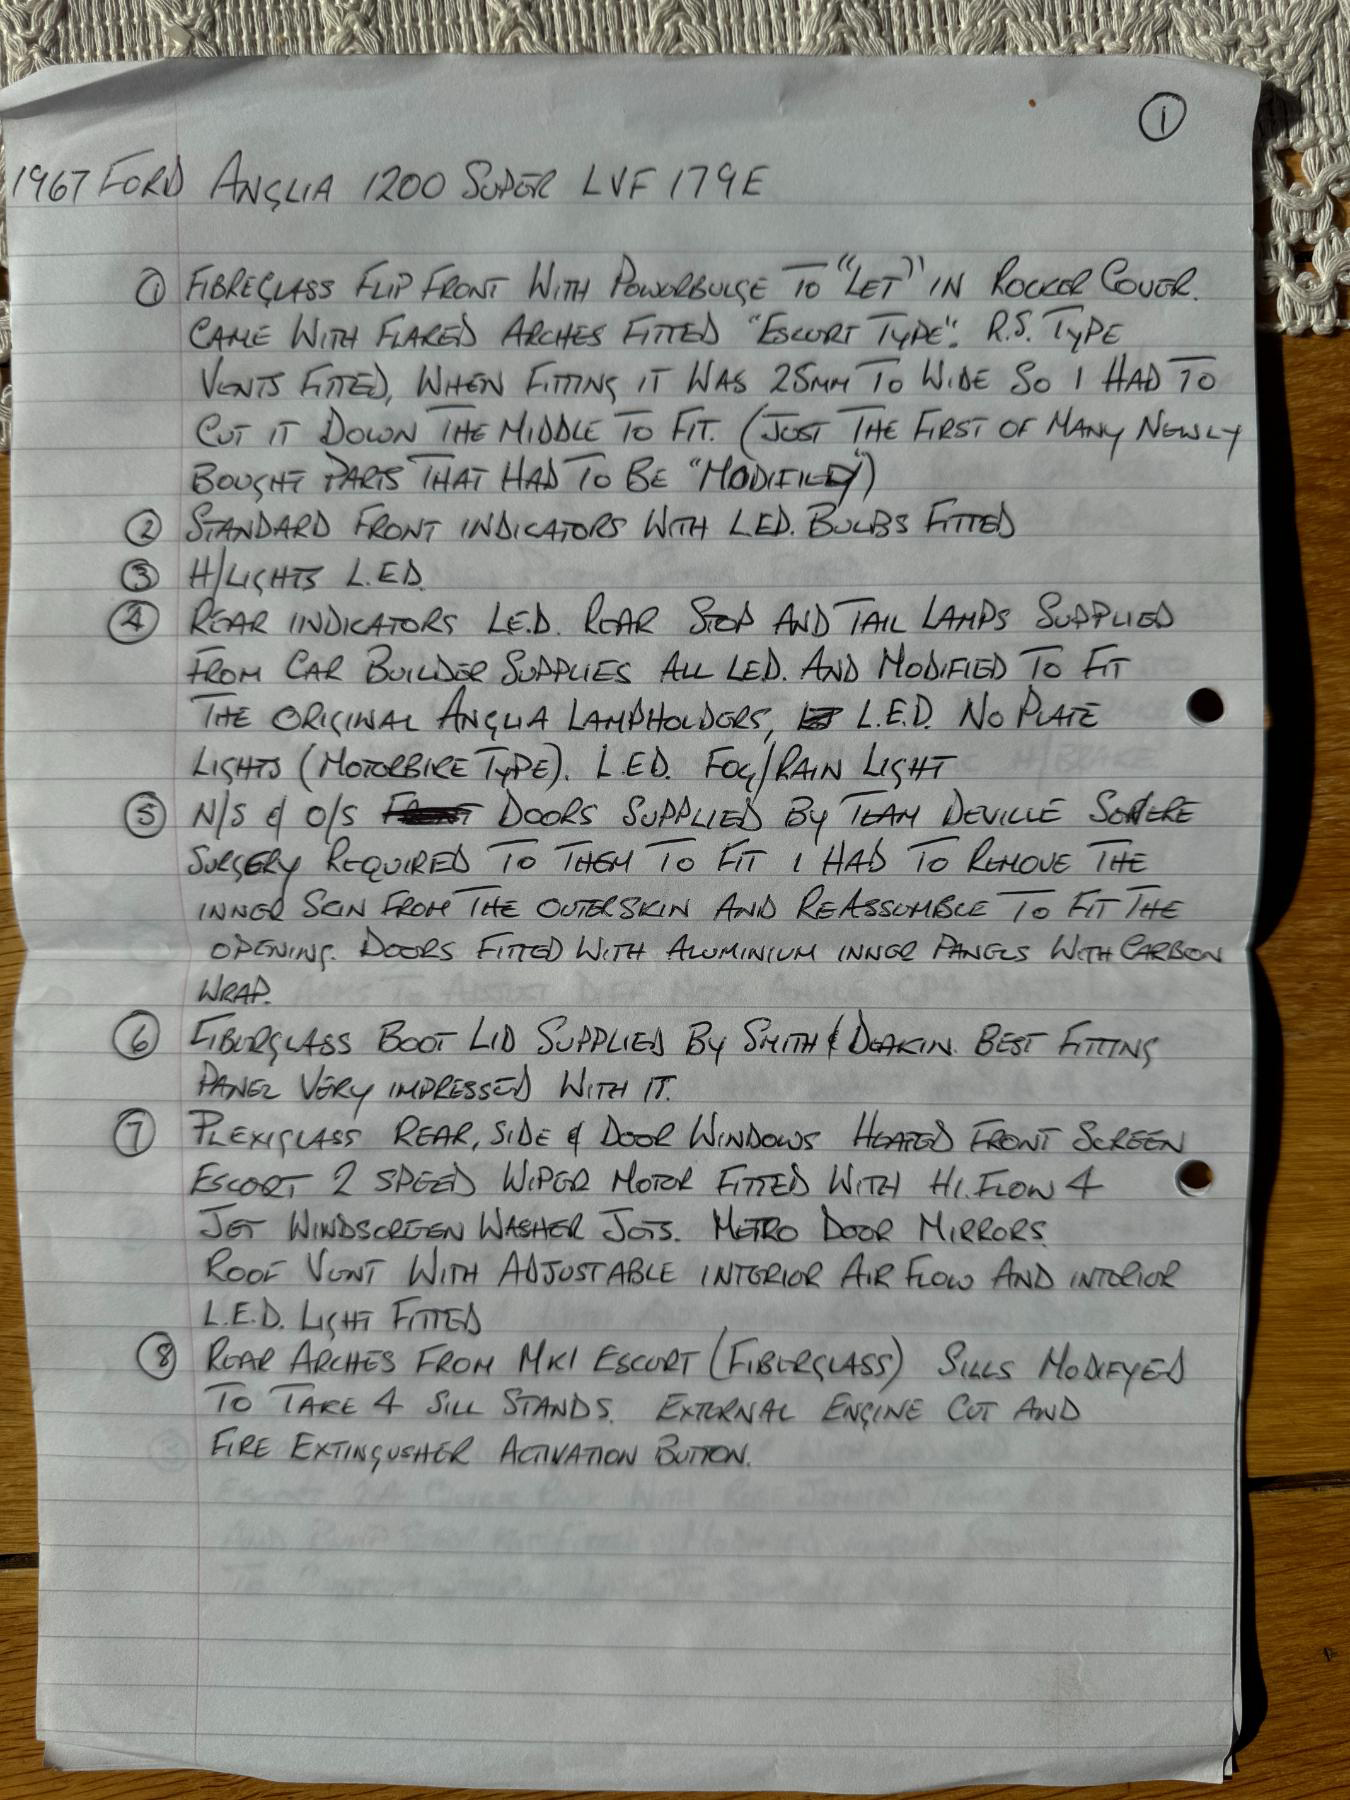 1
1967 FORD ANGLIA 1200 SUPER LVF 179E
1 FIBREGLASS FLIP FRONT WITH POWERBULGE TO "LET" IN ROCKER COVER.
CAME WITH FLARED ARCHES FITTED "ESCORT TYPE". R.S. TYPE
VENTS FITTED, WHEN FITTING IT WAS 25MM TO WIDE SO I HAD TO
CUT IT DOWN THE MIDDLE TO FIT. (JUST THE FIRST OF MANY NEWLY
BOUGHT PARTS THAT HAD TO BE "MODIFIED")
2 STANDARD FRONT INDICATORS WITH L.E.D. BULBS FITTED
3 H/LIGHTS L.E.D.
4 REAR INDICATORS L.E.D. REAR STOP AND TAIL LAMPS SUPPLIED
FROM CAR BUILDER SUPPLIES ALL L.E.D. AND MODIFIED TO FIT
THE ORIGINAL ANGLIA LAMPHOLDERS, L.E.D. NO PLATE
LIGHTS (MOTORBIKE TYPE). L.E.D. FOG/RAIN LIGHT
5 N/S & O/S DOORS SUPPLIED BY TEAM DEVILLE SEVERE
SURGERY REQUIRED TO THEM TO FIT I HAD TO REMOVE THE
INNER SKIN FROM THE OUTERSKIN AND REASSEMBLE TO FIT THE
OPENING. DOORS FITTED WITH ALUMINIUM INNER PANELS WITH CARBON
WRAP.
6 FIBERGLASS BOOT LID SUPPLIED BY SMITH & DEAKIN. BEST FITTING
PANEL VERY IMPRESSED WITH IT.
7 PLEXIGLASS REAR, SIDE & DOOR WINDOWS HEATED FRONT SCREEN
ESCORT 2 SPEED WIPER MOTOR FITTED WITH HI.FLOW 4
JET WINDSCREEN WASHER JETS. METRO DOOR MIRRORS.
ROOF VENT WITH ADJUSTABLE INTERIOR AIR FLOW AND INTERIOR
L.E.D. LIGHT FITTED
8 REAR ARCHES FROM MK1 ESCORT (FIBERGLASS) SILLS MODIFYED
TO TAKE 4 SILL STANDS. EXTERNAL ENGINE CUT AND
FIRE EXTINGUSHER ACTIVATION BUTTON.